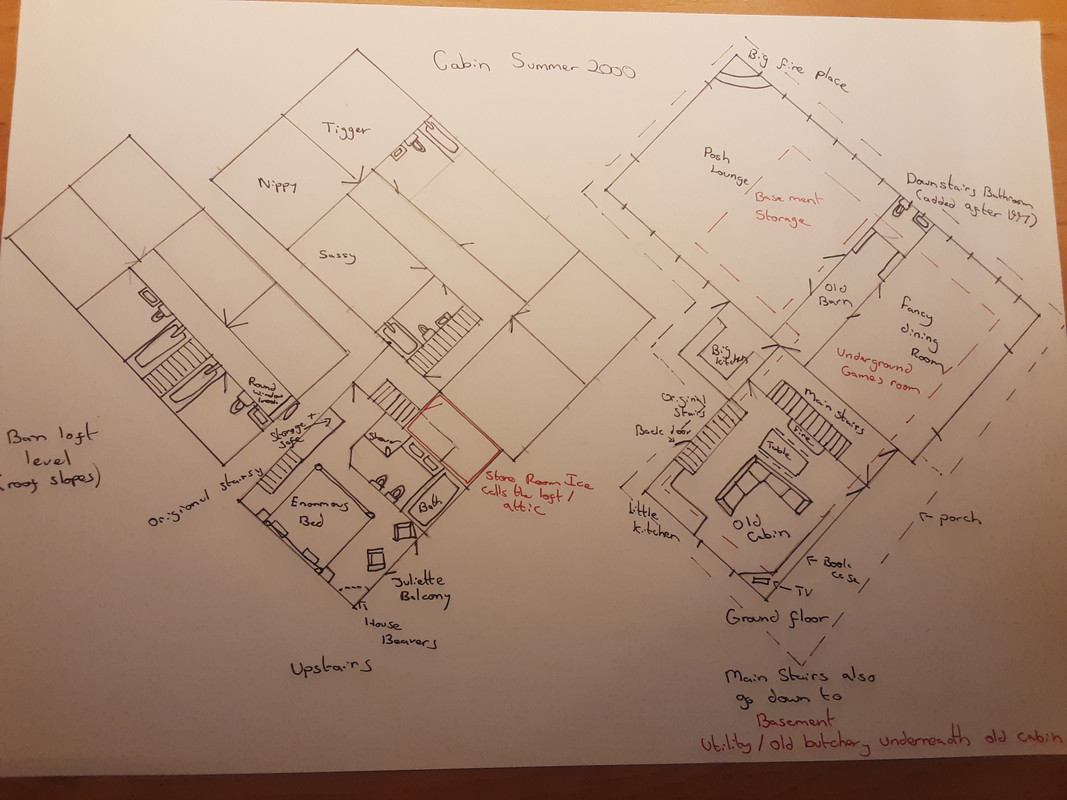 Cabin Summer 2000
Big fire place
Tigger
Nippy
Sassy
Posh
Lounge
Basement
Storage
Downstairs Bathroom
(added after 1997)
Old
Barn
Fancy
dining
Room
Underground
Games room
Big
kitchen
Original
Stairs
Back door
Main Stairs
Fire
Table
Old
Cabin
Little
kitchen
Book
case
TV
porch
Ground floor
Main Stairs also
go down to
Basement
Utility / old butchery underneath old cabin
Ban loft
level
(roof slopes)
Round
window
Storage +
safe
Origional stairs
Shower
Bath
Enormous
Bed
Store Room Ice
calls the loft /
attic
Juliette
Balcony
House
Beavers
Upstairs